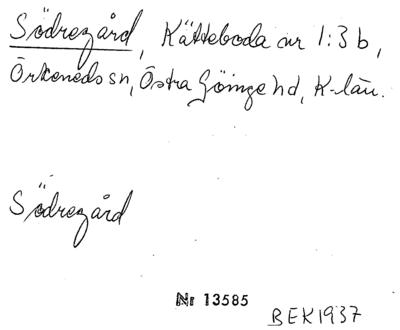 Södregård, Kätteboda nr 1:3b,
Örkeneds sn, Östra Göinge hd, K-län.
Södregård
Nr 13585
BEK1937